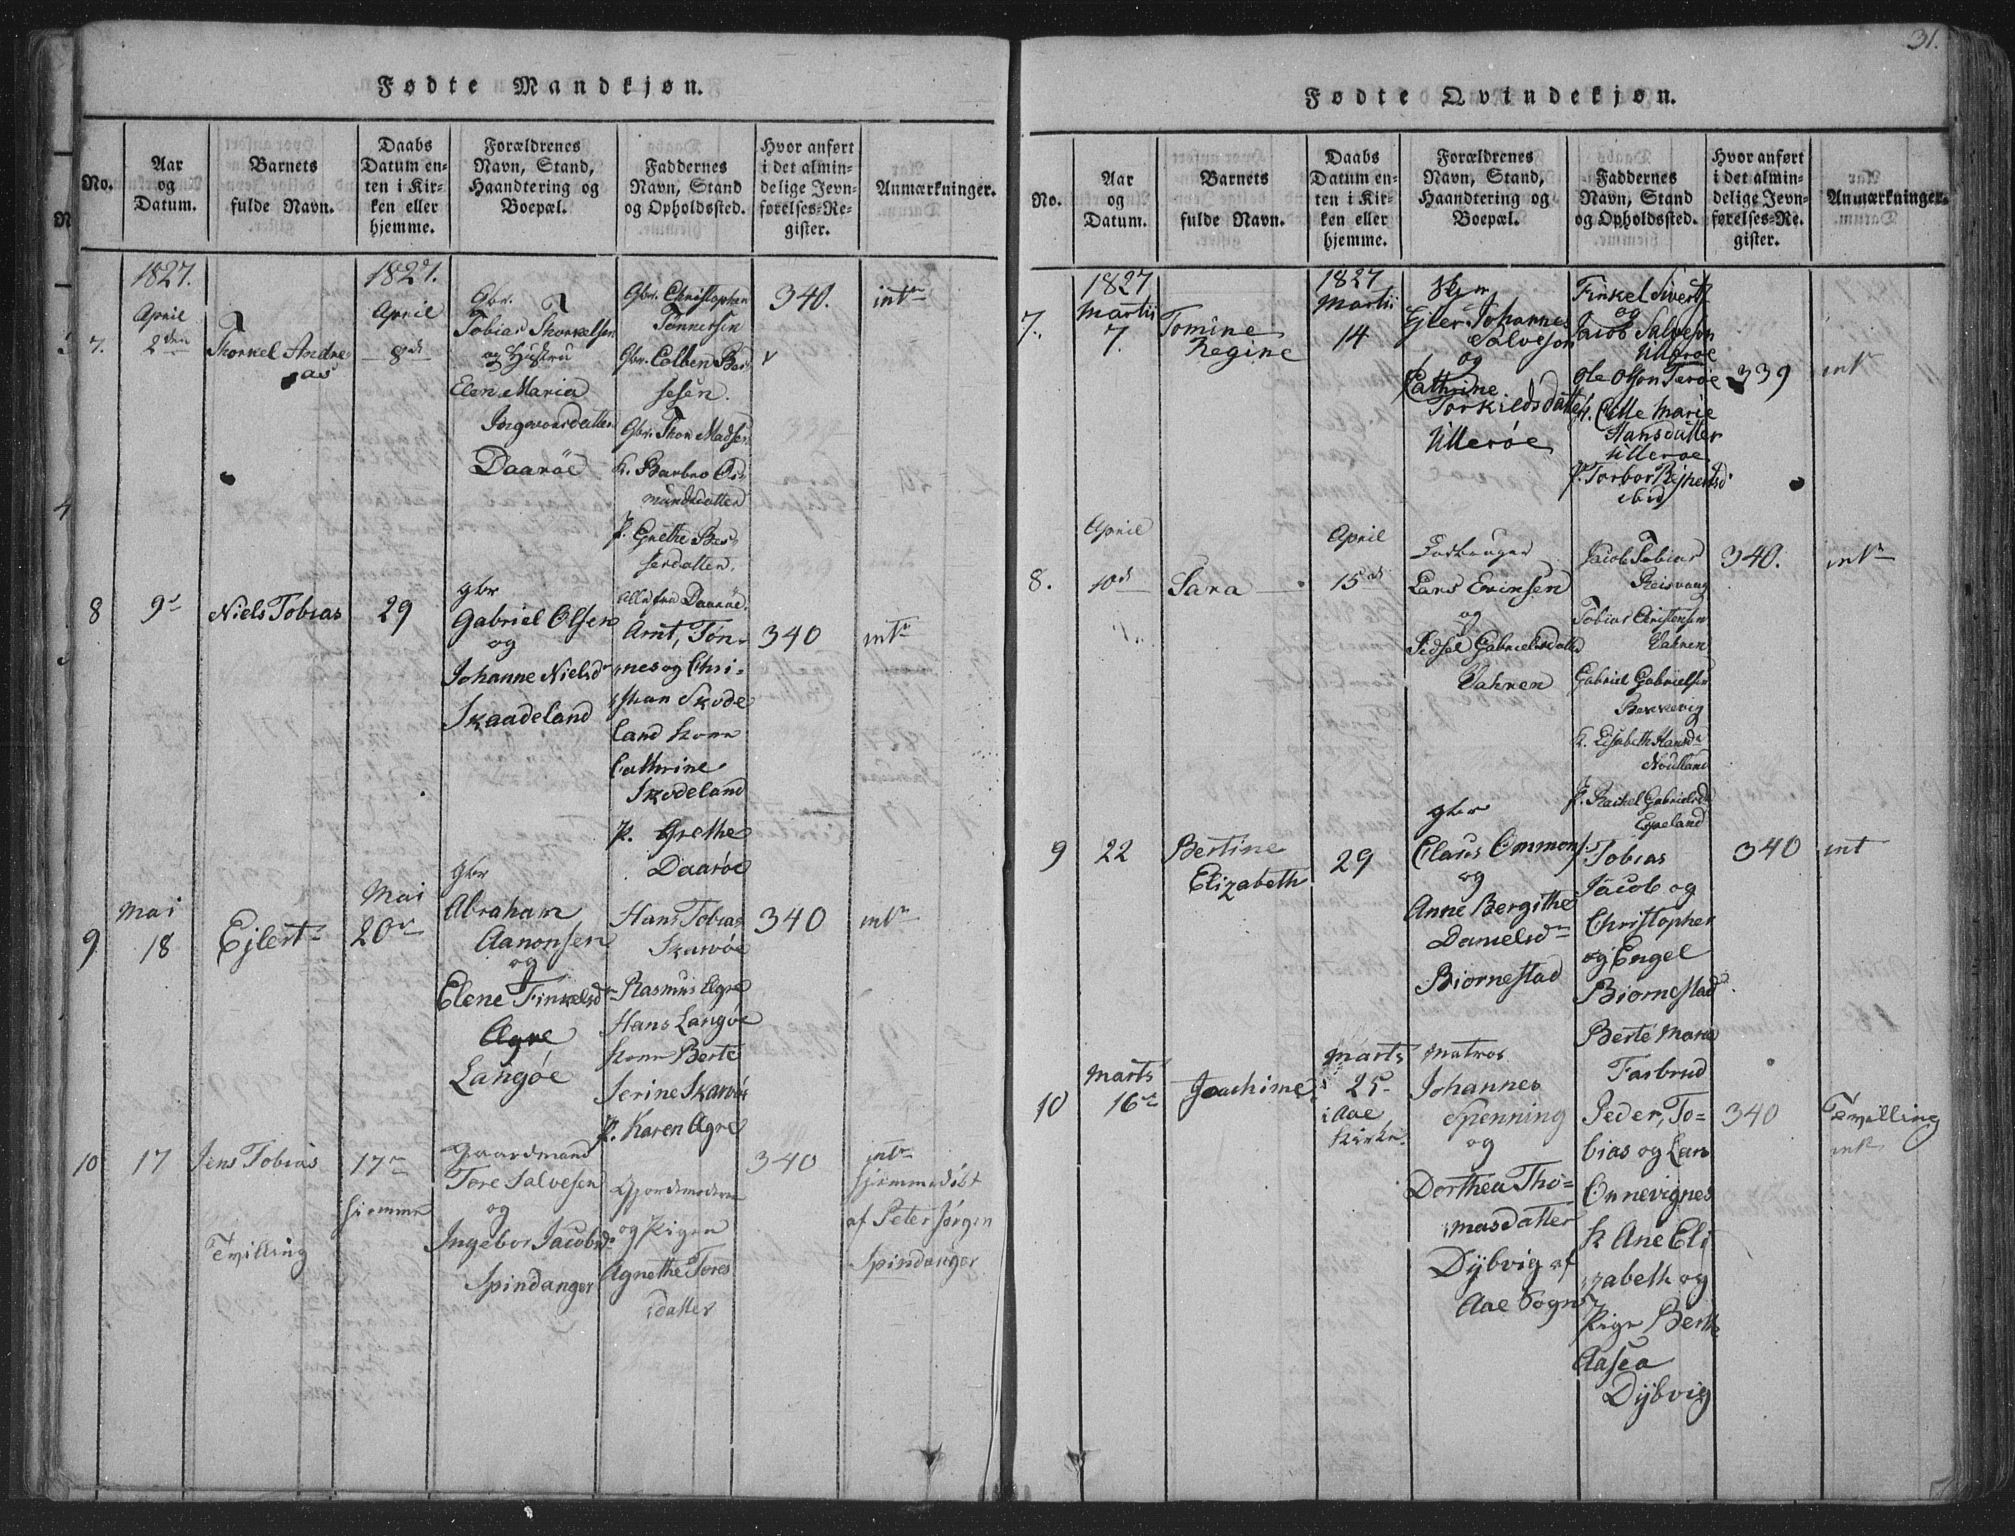 31.
Fødte Mandkjøn.
No.
Aar
og
Datum.
Barnets
fulde Navn.
Daabs
Datum en-
ten i Kir-
ken eller
hjemme.
Forældrenes
Navn, Stand,
Haandtering og
Boepæl.
Faddernes
Navn, Stand
og Opholdssted.
Hvor anført
i det almin-
delige Jevn-
førelses-Re-
gister.
Anmærkninger.
7.
1827.
April
2den
Thorkel Andre
as
1827.
April
8de
Gbr.
Tobias Thorkelsen
og Hustru
Elen Maria
Ingevaardatter
Daarøe
Gbr. Christopher
Tønnersen
Gbr. Colben Bes
sesen.
Gbr. Thore Madsen
K. Barbro Os-
mundsdatter
P. Grethe Bes-
sesdatter.
alle fra Daarøe.
340.
intr
8
9de
Niels Tobias
29
gbr
Gabriel Olsen
og
Johanne Nielsdr
Skaadeland
Arnt, Tøn-
nes og Chri-
sthan Skode
land kone
Cathrine
Skodeland
P. Grethe
Daarøe
340
intr
9.
Mai
18
Ejlert
Mai
20de
gbr
Abraham
Aanonsen
og
Elene Finkelsdr
Agre
Langøe
Hans Tobias
Skarøe
Rasmus Agre
Hans Langøe
kone Berte
Serine Skarøe
P. Karen Agre
340
intr
10
17
Jens Tobias
Tvilling
17de
hiemme
Gaardmand
Tore Salvesen
og
Ingebor Jacobsdr
Spindanger
Gjordemoderen
og Pigen
Agnethe Tores
datter
340
intr
hjemmedøbt
af Peter Jørgen
Spindanger
Fødte Qvindekjøn.
No.
Aar
og
Datum.
Barnets
fulde Navn.
Daabs
Datum en-
ten i Kir-
ken eller
hjemme.
Forældrenes
Navn, Stand,
Haandtering og
Boepæl.
Faddernes
Navn, Stand
og Opholdssted.
Hvor anført
i det almin-
delige Jevn-
førelses-Re-
gister.
Anmærkninger.
7.
1827
Martii
7.
Tomine
Regine
1827
Martii
14
Ejler Johannes
Salveson
og
Cathrine
Torkildsdatter
Ullerøe
Finkel Sivertz
og
Jacob Salveson
Ullerøe
Ole Olson Terøe
K. Cille Marie
Hansdatter
Ullerøe
P. Torbor Rejhertsd
ibid
339
int
8.
April
10de
Sara
April
15de
Lars Evinsen
og
Sidsel Gabrielsdatter
Vahnen
Jacob Tobias
Reisvaag
Tobias Christensen
Vahnen
Gabriel Gabrielsen
Bekkevig
K. Elisabeth Hansdr
P. Rachel Gabrielsd
Egeland
340.
intr
9
22
Bertine
Elizabeth
29
gbr
Claus Ommons.
og
Anne Bergithe
Danielsdr
Biornestad
Tobias
Jacob og
Christopher
og Engel
Biornestad
Berte Marie
Fasbrud
340
int
10
Marts
16de
Joachime
Marts
25
i Aae
Kirke.
Matros
Johannes
Spenning
og
Dorthea Tho-
masdatter
Dÿbvig af
Aae Sogn
Peder, To-
bias og Lars
Onnevignes
K Ane Eli
zabeth og
Pige Berthe
Aasea
Dÿbvig
340
Tvilling
intr